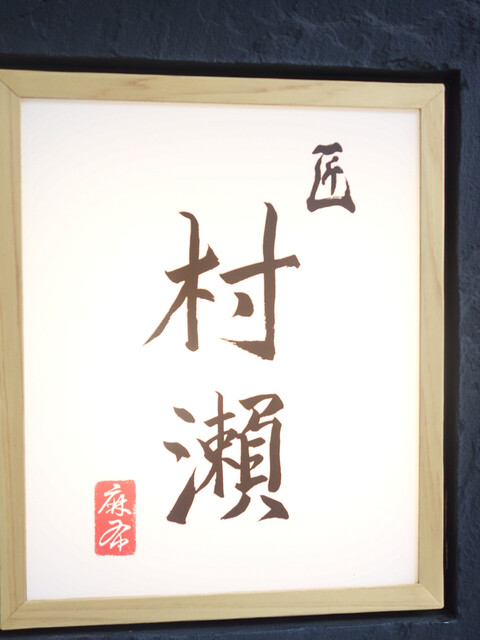 匠
村瀬
麻布